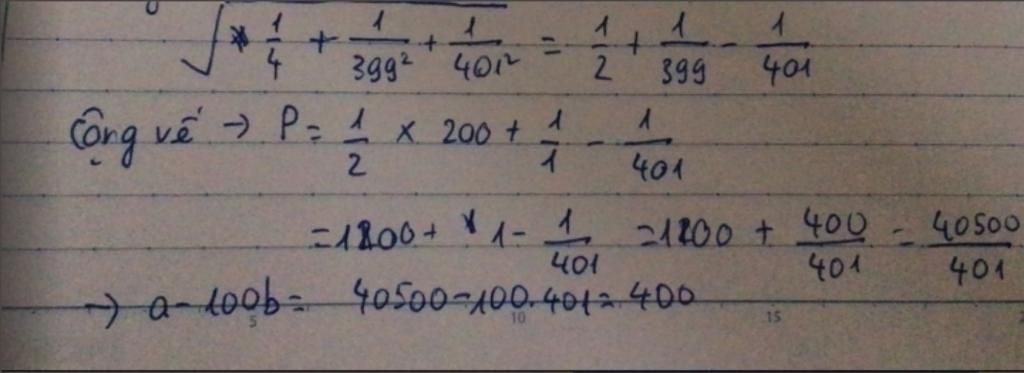 √(1/4 + 1/399² + 1/401²) = 1/2 + 1/399 - 1/401
Cộng vế → P = 1/2 × 200 + 1/1 - 1/401
= 100 + 1 - 1/401 = 100 + 400/401 = 40500/401
→ a - 100b = 40500 - 100.401 = 400
5 10 15